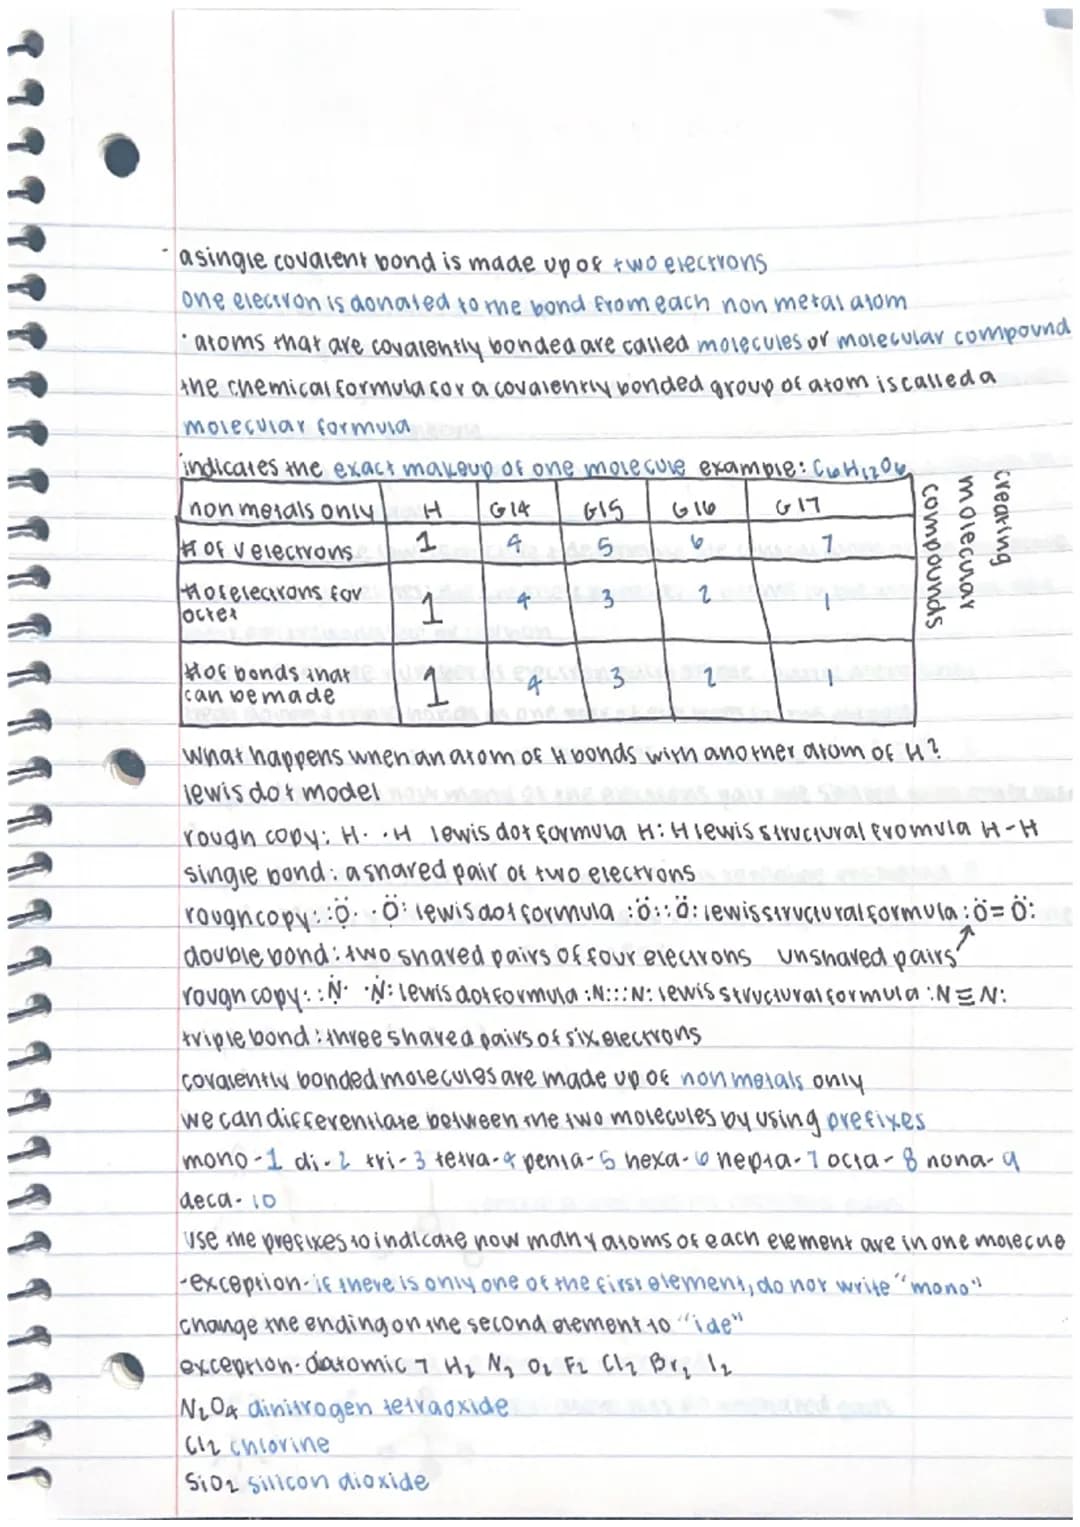 a single covalent bond is made up of two electrons
one electron is donated to the bond from each non metal atom
· atoms that are covalently bonded are called molecules or molecular compound
the chemical formula for a covalently bonded group of atom is called a
molecular formula
indicates the exact makeup of one molecule example: C6H12O6
non metals only H G14 G15 G16 G17
# of v electrons 1 4 5 6 7
# of electrons for
octet 1 4 3 2 1
# of bonds that
can be made 1 4 3 2 1
creating
molecular
compounds
What happens when an atom of H bonds with another atom of H?
lewis dot model
rough copy: H· ·H lewis dot formula H:H lewis structural fromula H-H
single bond: a shared pair of two electrons
rough copy: :Ö· ·Ö: lewis dot formula :Ö::Ö: lewis structural formula :Ö=Ö:
double bond: two shared pairs of four electrons unshared pairs
rough copy: :Ṅ· ·Ṅ: lewis dot formula :N:::N: lewis structural formula :N≡N:
triple bond: three shared pairs of six electrons
covalently bonded molecules are made up of non metals only
we can differentiate between the two molecules by using prefixes
mono-1 di-2 tri-3 tetra-4 penta-5 hexa-6 hepta-7 octa-8 nona-9
deca-10
use the prefixes to indicate how many atoms of each element are in one molecue
-exception- if there is only one of the first element, do not write "mono"
change the ending on the second element to "ide"
exception-diatomic 7 H2 N2 O2 F2 Cl2 Br2 I2
N2O4 dinitrogen tetraoxide
Cl2 chlorine
SiO2 silicon dioxide